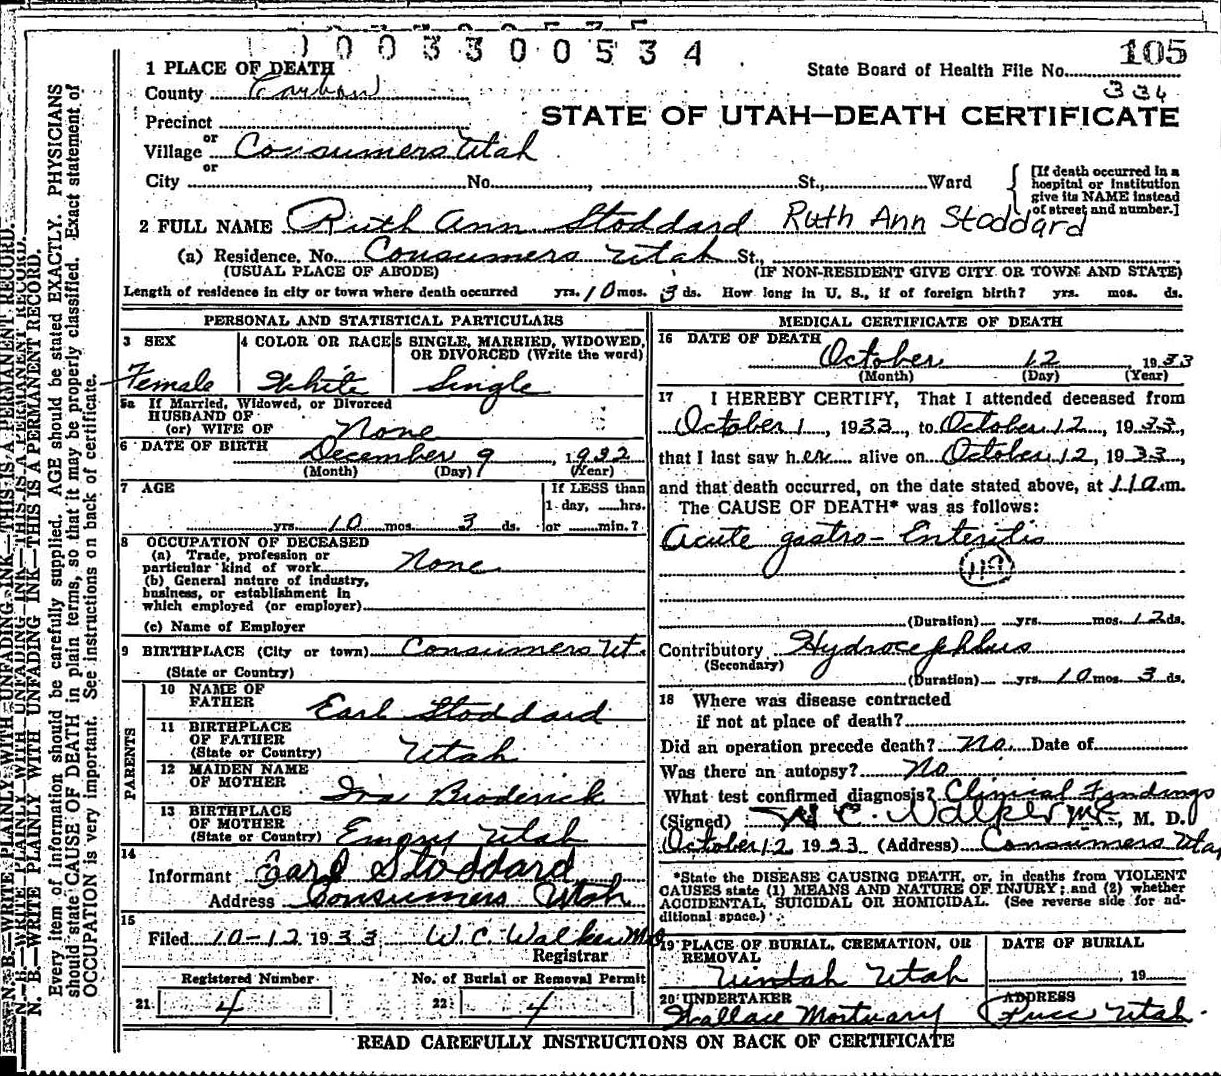 1003300534
105
State Board of Health File No.
334
1 PLACE OF DEATH
County Carbon
STATE OF UTAH—DEATH CERTIFICATE
Precinct
or
Village Consumers Utah
or
City No. , St., Ward
[If death occurred in a hospital or institution give its NAME instead of street and number.]
2 FULL NAME Ruth Ann Stoddard Ruth Ann Stoddard
(a) Residence. No. Consumers Utah St.,
(USUAL PLACE OF ABODE) (IF NON-RESIDENT GIVE CITY OR TOWN AND STATE)
Length of residence in city or town where death occurred yrs. 10 mos. 3 ds. How long in U. S., if of foreign birth? yrs. mos. ds.
PERSONAL AND STATISTICAL PARTICULARS
3 SEX
Female
4 COLOR OR RACE
White
5 SINGLE, MARRIED, WIDOWED,
OR DIVORCED (Write the word)
Single
5a If Married, Widowed, or Divorced
HUSBAND OF
(or) WIFE OF None
6 DATE OF BIRTH December 9, 1932
(Month) (Day) (Year)
7 AGE
yrs. 10 mos. 3 ds.
If LESS than
1 day, hrs.
or min.?
8 OCCUPATION OF DECEASED
(a) Trade, profession or
particular kind of work None
(b) General nature of industry,
business, or establishment in
which employed (or employer)
(c) Name of Employer
9 BIRTHPLACE (City or town) Consumers Ut.
(State or Country)
PARENTS
10 NAME OF
FATHER Earl Stoddard
11 BIRTHPLACE
OF FATHER
(State or Country) Utah
12 MAIDEN NAME
OF MOTHER Iva Broderick
13 BIRTHPLACE
OF MOTHER
(State or Country) Emery Utah
14
Informant Earl Stoddard
Address Consumers Utah
15
Filed 10-12 1933 W C Walker M.D.
Registrar
Registered Number
21 4
No. of Burial or Removal Permit
22 4
MEDICAL CERTIFICATE OF DEATH
16 DATE OF DEATH
October 12 1933
(Month) (Day) (Year)
17 I HEREBY CERTIFY, That I attended deceased from
October 1, 1933, to October 12, 1933,
that I last saw her alive on October 12, 1933,
and that death occurred, on the date stated above, at 11 a.m.
The CAUSE OF DEATH* was as follows:
Acute gastro-Enteritis
119
(Duration) yrs. mos. 12 ds.
Contributory Hydrocephlus
(Secondary)
(Duration) yrs. 10 mos. 3 ds.
18 Where was disease contracted
if not at place of death?
Did an operation precede death? No Date of
Was there an autopsy? No
What test confirmed diagnosis? Clinical Findings
(Signed) W C. Walker , M. D.
October 12 1933 (Address) Consumers Utah
*State the DISEASE CAUSING DEATH, or, in deaths from VIOLENT
CAUSES state (1) MEANS AND NATURE OF INJURY; and (2) whether
ACCIDENTAL, SUICIDAL OR HOMICIDAL. (See reverse side for ad-
ditional space.)
19 PLACE OF BURIAL, CREMATION, OR
REMOVAL
Uintah Utah
DATE OF BURIAL
, 19
20 UNDERTAKER
Wallace Mortuary
ADDRESS
Price Utah
READ CAREFULLY INSTRUCTIONS ON BACK OF CERTIFICATE
N. B.—WRITE PLAINLY WITH UNFADING INK—THIS IS A PERMANENT RECORD.
N. B.—WRITE PLAINLY WITH UNFADING INK—THIS IS A PERMANENT RECORD.
N. B.—WRITE PLAINLY WITH UNFADING INK—THIS IS A PERMANENT RECORD.
Every item of information should be carefully supplied. AGE should be stated EXACTLY. PHYSICIANS
should state CAUSE OF DEATH in plain terms, so that it may be properly classified. Exact statement of
OCCUPATION is very important. See instructions on back of certificate.